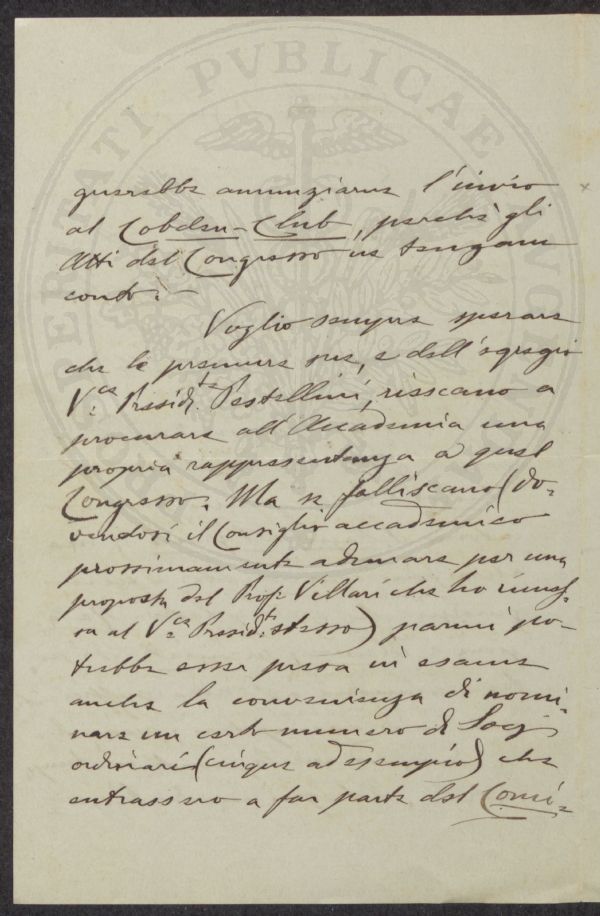 PROSPERITATI PVBLICAE AVGENDAE
querebbe annunziarne l'invio
al Cobden-Club, perchè gli
Atti del Congresso ne tengano
conto. –
Voglio sempre sperare
che le premure sue, e dell'egregio
V.ce Presid.te Pestellini, riescano a
procurare all'Accademia una
propria rappresentanza a quel
Congresso. Ma se falliscano (do=
vendosi il Consiglio accademico
prossimamente adunare per una
proposta del Prof. Villari che ho rimes=
sa al V.ce Presid.te stesso) parmi po=
trebbe esser presa in esame
anche la convenienza di nomi=
nare un certo numero di Socj
ordinarî (cinque ad esempio) che
entrassero a far parte del Comi=